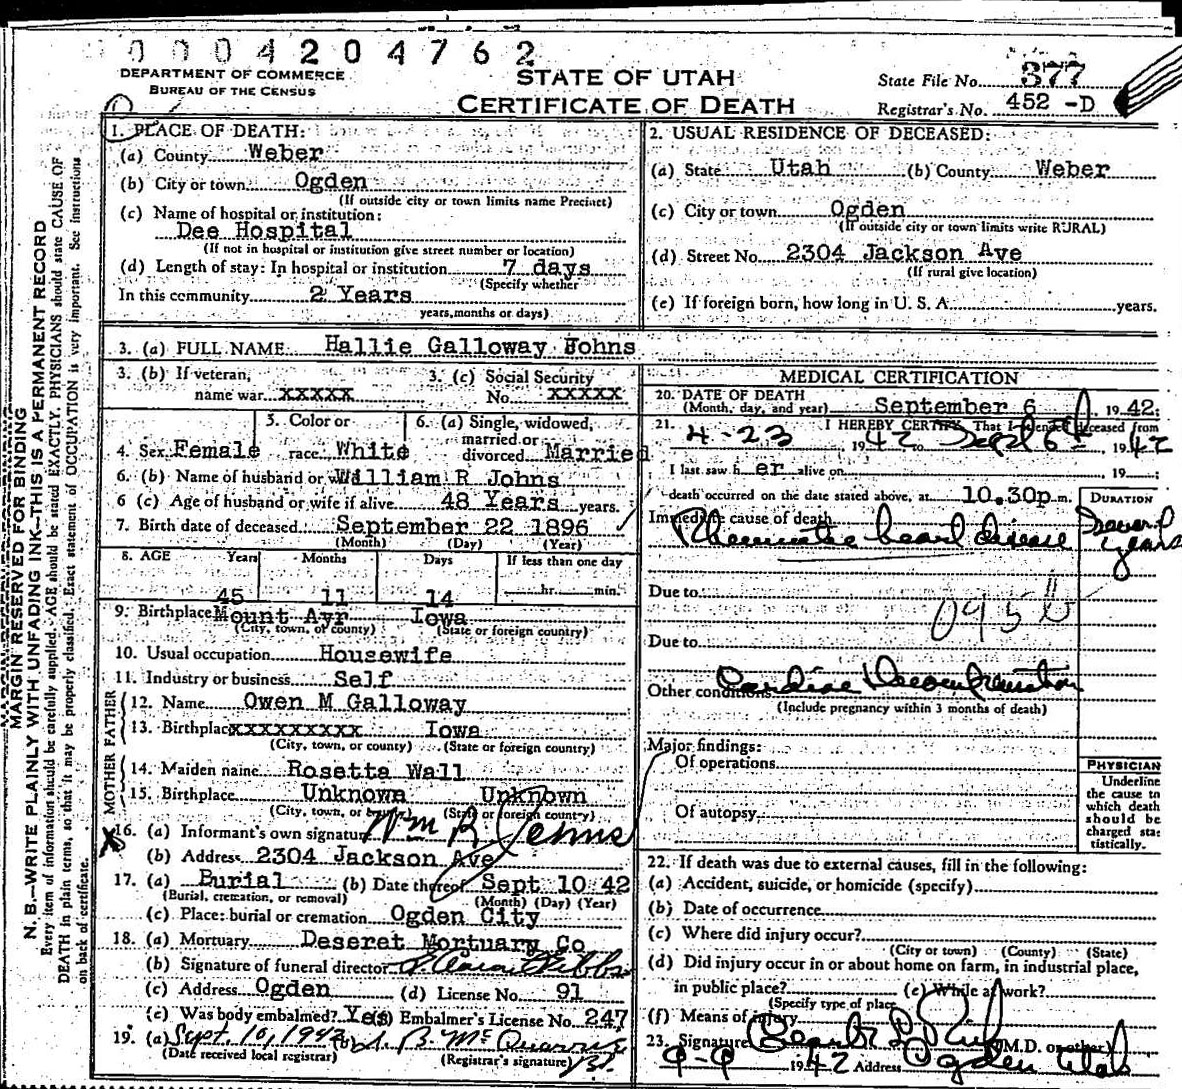 0004204762
DEPARTMENT OF COMMERCE
BUREAU OF THE CENSUS
STATE OF UTAH
CERTIFICATE OF DEATH
State File No. 377
Registrar's No. 452 -D
MARGIN RESERVED FOR BINDING
N. B.—WRITE PLAINLY WITH UNFADING INK—THIS IS A PERMANENT RECORD
Every item of information should be carefully supplied. AGE should be stated EXACTLY. PHYSICIANS should state CAUSE OF
DEATH in plain terms, so that it may be properly classified. Exact statement of OCCUPATION is very important. See instructions
on back of certificate.
1. PLACE OF DEATH:
(a) County Weber
(b) City or town Ogden
(If outside city or town limits name Precinct)
(c) Name of hospital or institution:
Dee Hospital
(If not in hospital or institution give street number or location)
(d) Length of stay: In hospital or institution 7 days
(Specify whether
In this community 2 Years
years, months or days)
2. USUAL RESIDENCE OF DECEASED:
(a) State Utah (b) County Weber
(c) City or town Ogden
(If outside city or town limits write RURAL)
(d) Street No. 2304 Jackson Ave
(If rural give location)
(e) If foreign born, how long in U. S. A. years.
3. (a) FULL NAME Hallie Galloway Johns
3. (b) If veteran,
name war xxxxx
3. (c) Social Security
No. xxxxx
4. Sex Female
5. Color or
race White
6. (a) Single, widowed,
married or
divorced Married
6. (b) Name of husband or wife William R Johns
6 (c) Age of husband or wife if alive 48 Years years.
7. Birth date of deceased September 22 1896
(Month) (Day) (Year)
8. AGE Years Months Days If less than one day
45 11 14 hr. min.
9. Birthplace Mount Ayr Iowa
(City, town, or county) (State or foreign country)
10. Usual occupation Housewife
11. Industry or business Self
FATHER
12. Name Owen M Galloway
13. Birthplace xxxxxxxxx Iowa
(City, town, or county) (State or foreign country)
MOTHER
14. Maiden name Rosetta Wall
15. Birthplace Unknowa Unknown
(City, town, or county) (State or foreign country)
16. (a) Informant's own signature Wm R Johns
(b) Address 2304 Jackson Ave
17. (a) Burial (b) Date thereof Sept 10 42
(Burial, cremation, or removal) (Month) (Day) (Year)
(c) Place: burial or cremation Ogden City
18. (a) Mortuary Deseret Mortuary Co
(b) Signature of funeral director
(c) Address Ogden (d) License No. 91
(e) Was body embalmed? Yes (f) Embalmer's License No. 247
19. (a) Sept. 10, 1942 (b)
(Date received local registrar) (Registrar's signature)
MEDICAL CERTIFICATION
20. DATE OF DEATH
(Month, day, and year) September 6, 1942;
21. I HEREBY CERTIFY, That I attended deceased from
4-23 1942 to Sept 6th 1942
I last saw h er alive on 19
death occurred on the date stated above, at 10.30p m.
DURATION
Immediate cause of death
Rheumatic heart disease Several years
Due to
095 b
Due to
Other conditions Cardiac Decompensation
(Include pregnancy within 3 months of death)
Major findings:
Of operations
Of autopsy
PHYSICIAN
Underline
the cause to
which death
should be
charged sta-
tistically.
22. If death was due to external causes, fill in the following:
(a) Accident, suicide, or homicide (specify)
(b) Date of occurrence
(c) Where did injury occur?
(City or town) (County) (State)
(d) Did injury occur in or about home on farm, in industrial place,
in public place? (e) While at work?
(Specify type of place
(f) Means of injury
23. Signature (M.D. or other)
9-9 1942 Address Ogden Utah